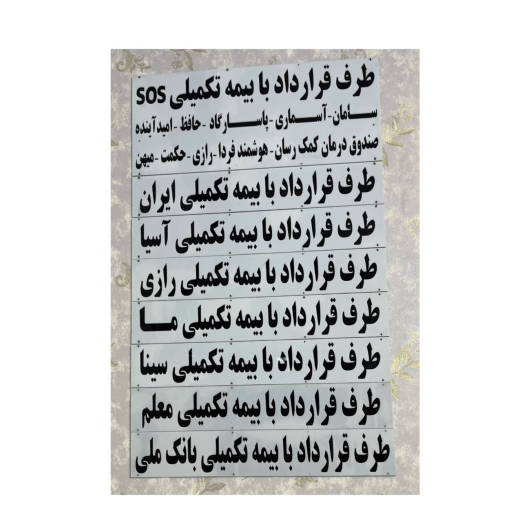 طرف قرارداد با بیمه تکمیلی SOS
سامان-آسماری-پاسارگاد-حافظ-امیدآینده
صندوق درمان کمک رسان-هوشمند فردا-رازی-حکمت-میهن
طرف قرارداد با بیمه تکمیلی ایران
طرف قرارداد با بیمه تکمیلی آسیا
طرف قرارداد با بیمه تکمیلی رازی
طرف قرارداد با بیمه تکمیلی ما
طرف قرارداد با بیمه تکمیلی سینا
طرف قرارداد با بیمه تکمیلی معلم
طرف قرارداد با بیمه تکمیلی بانک ملی